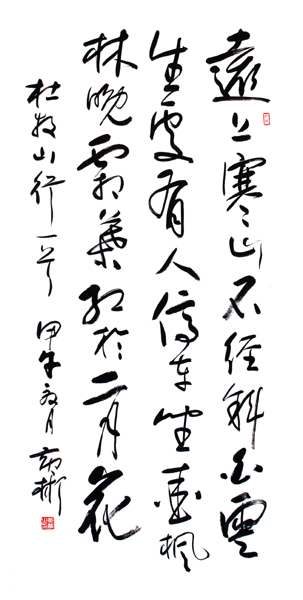 遠上寒山石径斜白雲
生處有人停車坐愛楓
林晚霜葉紅於二月花
杜牧山行一首 甲午夏月 彬